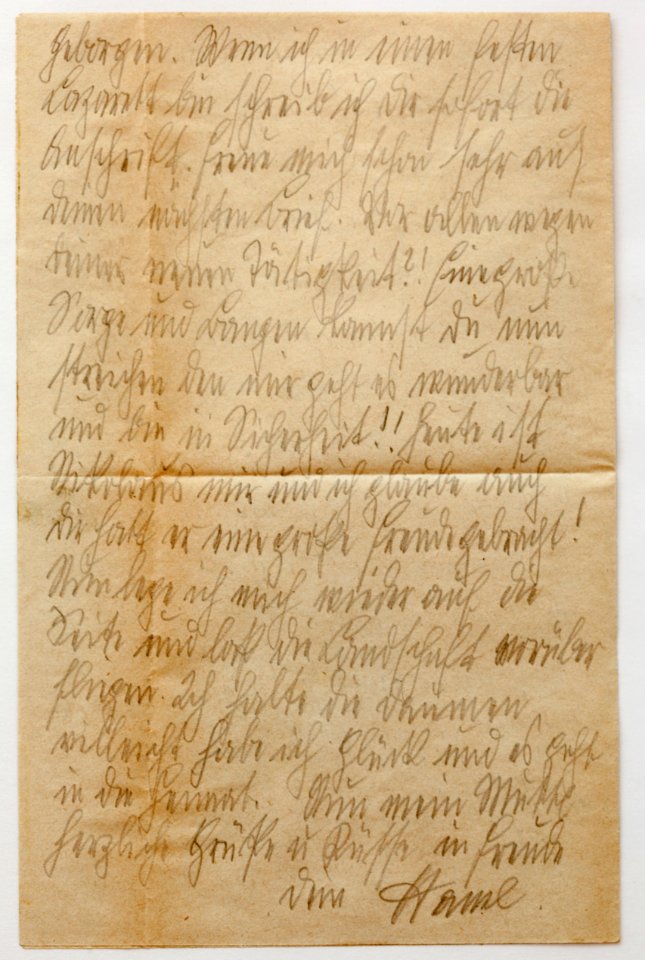 geborgen. Wenn ich in einen festen
Lazarett bin schreib ich dir sofort die
Anschrift. Freue mich schon sehr auf
deinen nächsten Brief. Vor allen wegen
deiner neuen Tätigkeit?! Eine große
Sorge und Bangen kannst du nun
streichen den mir geht es wunderbar
und bin in Sicherheit!! Heute ist
Nikolaus mir und ich glaube auch
dir hatt er eine große Freude gebracht!
Nun lege ich mich wieder auf die
Seite und laß die Landschaft vorüber
fliegen. Ich halte die Daumen
villeicht habe ich Glück und es geht
in die Heimat. Nun mein
herzliche Grüße u Küsse in Freude
dein